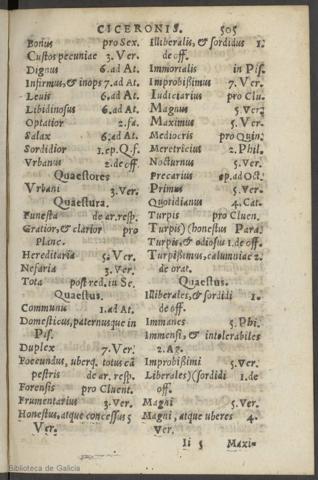 CICERONIS. 505
Bonus pro Sex.
Custos pecuniae 3. Ver.
Dignus 6. ad At.
Infirmus, & inops 7. ad At.
Leuis 6. ad At.
Libidinosus 6. ad At.
Optatior 2. fa.
Salax 6. ad At.
Sordidior 1. ep. Q. f.
Vrbanus 2. de off.
Quaestores
Vrbani 3. Ver.
Quaestura.
Funesta de ar. resp.
Gratior, & clarior pro
Planc.
Hereditaria 5. Ver.
Nefaria 3. Ver.
Tota post red. in Se.
Quaestus.
Communu 1. ad At.
Domesticus, paternusque in
Pis.
Duplex 7. Ver.
Foecundus, uberq. totus cã
pestris de ar. resp.
Forensis pro Cluent.
Frumentarius 3. Ver.
Honestus, atque concessus 5
Ver.
Illiberalis, & sordidus 1.
de off.
Immortalis in Pis.
Improbißimus 7. Ver.
Iudiciarius pro Clu.
Magnus 5. Ver.
Maximus 5. Ver.
Mediocris pro Quin.
Meretricius 2. Phil.
Nocturnus 5. Ver.
Precarius ep. ad Oct.
Primus 5. Ver.
Quotidianus 4. Cat.
Turpis pro Cluen.
Turpis) (honestus Para.
Turpis, & odiosus 1. de off.
Turpißimus, calumniae 2.
de orat.
Quaestus.
Illiberales, & sordidi 1.
de off.
Immanes 5. Phi.
Immensi, & intolerabiles
2. Ag.
Improbißimi 5. Ver.
Liberales) (sordidi 1. de
off.
Magni 5. Ver.
Magni, atque uberes 4.
Ver.
Ii 5 Maxi-
Biblioteca de Galicia